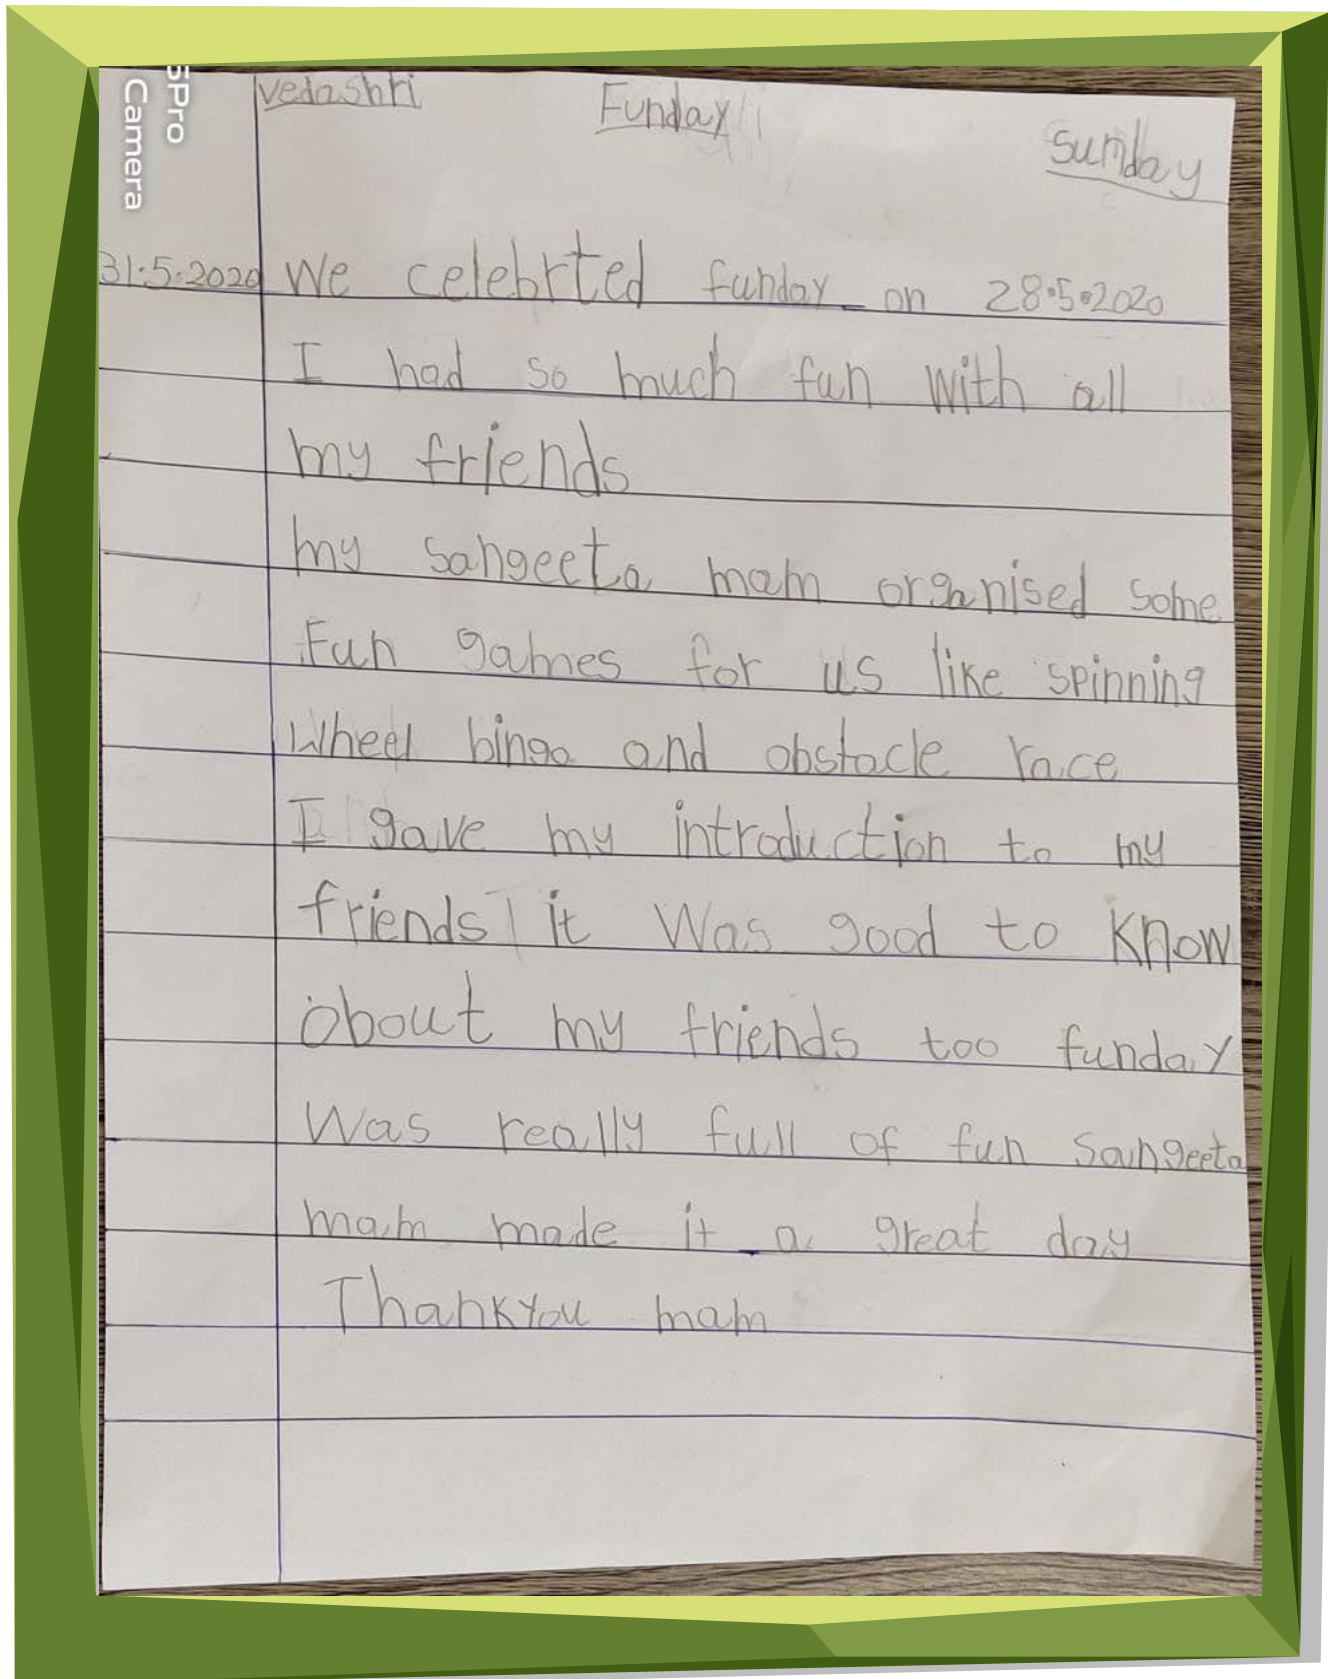 5Pro
Camera
vedashri Funday sunday
31.5.2020 We celebrted funday on 28.5.2020
I had so much fun with all
my friends
my sangeeta mam organised some
Fun games for us like spinning
Wheel bingo and obstacle race
I gave my introduction to my
friends it Was good to know
about my friends too funday
Was really full of fun sangeeta
mam made it a great day
Thankyou mam